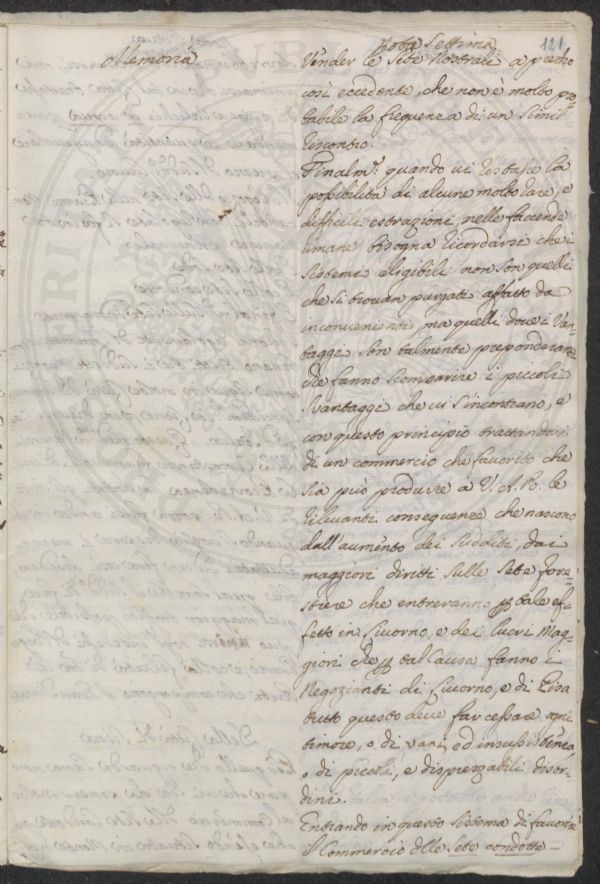 Memoria
Note Settima
121
Vender le sete nostrali a prezzo
così eccedente, che non è molto pro-
babile la frequenza di un simil
riscontro
Finalm.e quando vi restasse la
possibilità di alcune molto rare, e
difficili estrazioni, nelle faccende
umane bisogna ricordarsi che i
sistemi eligibili non son quelli
che si trovan purgati affatto da
inconvenienti, ma quelli dove i Van-
taggi son talmente preponderanti
che fanno scomparire i piccoli
svantaggi che vi s'incontrano, e
con questo principio trattandosi
di un commercio che favorito che
sia può produrre a V. A. R. le
rilevanti conseguenze che nascono
dall'aumento dei sudditi, dai
maggiori diritti sulle sete fore-
stiere che entreranno p tale ef-
fetto in Livorno, e dei lucri mag-
giori che p tal causa fanno i
Negozianti di Livorno, e di Pisa
tutto questo deve far cessare ogni
timore, o di vani, ed insussistenti,
o di piccoli, e disprezzabili disor-
dini.
Entrando in questo sistema di favorire
il Commercio delle sete condotte